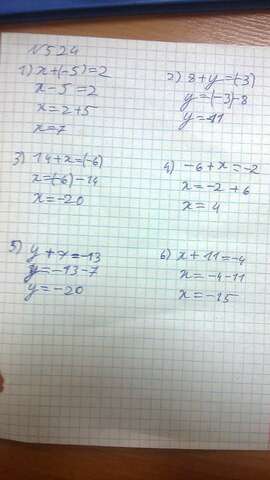 №524
1) x+(-5)=2
x-5=2
x=2+5
x=7
2) 8+y=(-3)
y=(-3)-8
y=-11
3) 14+x=(-6)
x=(-6)-14
x=-20
4) -6+x=-2
x=-2+6
x=4
5) y+7=-13
y=-13-7
y=-20
6) x+11=-4
x=-4-11
x=-15